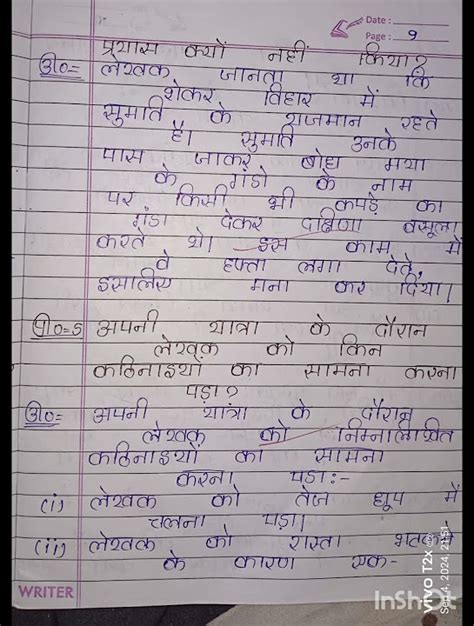 Date :
Page : 9
प्रयास क्यों नहीं किया?
उ०= लेखक जानता था कि
शेकर विहार में
सुमति के यजमान रहते
है। सुमति उनके
पास जाकर बोध गया
के गंडो के नाम
पर किसी भी कपड़े का
गंडा देकर दक्षिणा वसूला
करते थे। इस काम में
वे हफ्ता लगा देते,
इसालिए मना कर दिया।
प्र०=5 अपनी यात्रा के दौरान
लेखक को किन
कठिनाइयों का सामना करना
पड़ा?
उ०= अपनी यात्रा के दौरान
लेखक को निम्नलिखित
कठिनाइयों का सामना
करना पड़ा:-
(i) लेखक को तेज धूप में
चलना पड़ा।
(ii) लेखक को रास्ता भटकने
के कारण एक-
WRITER
InShot
vivo T2x
Sep 4, 2024, 21:51